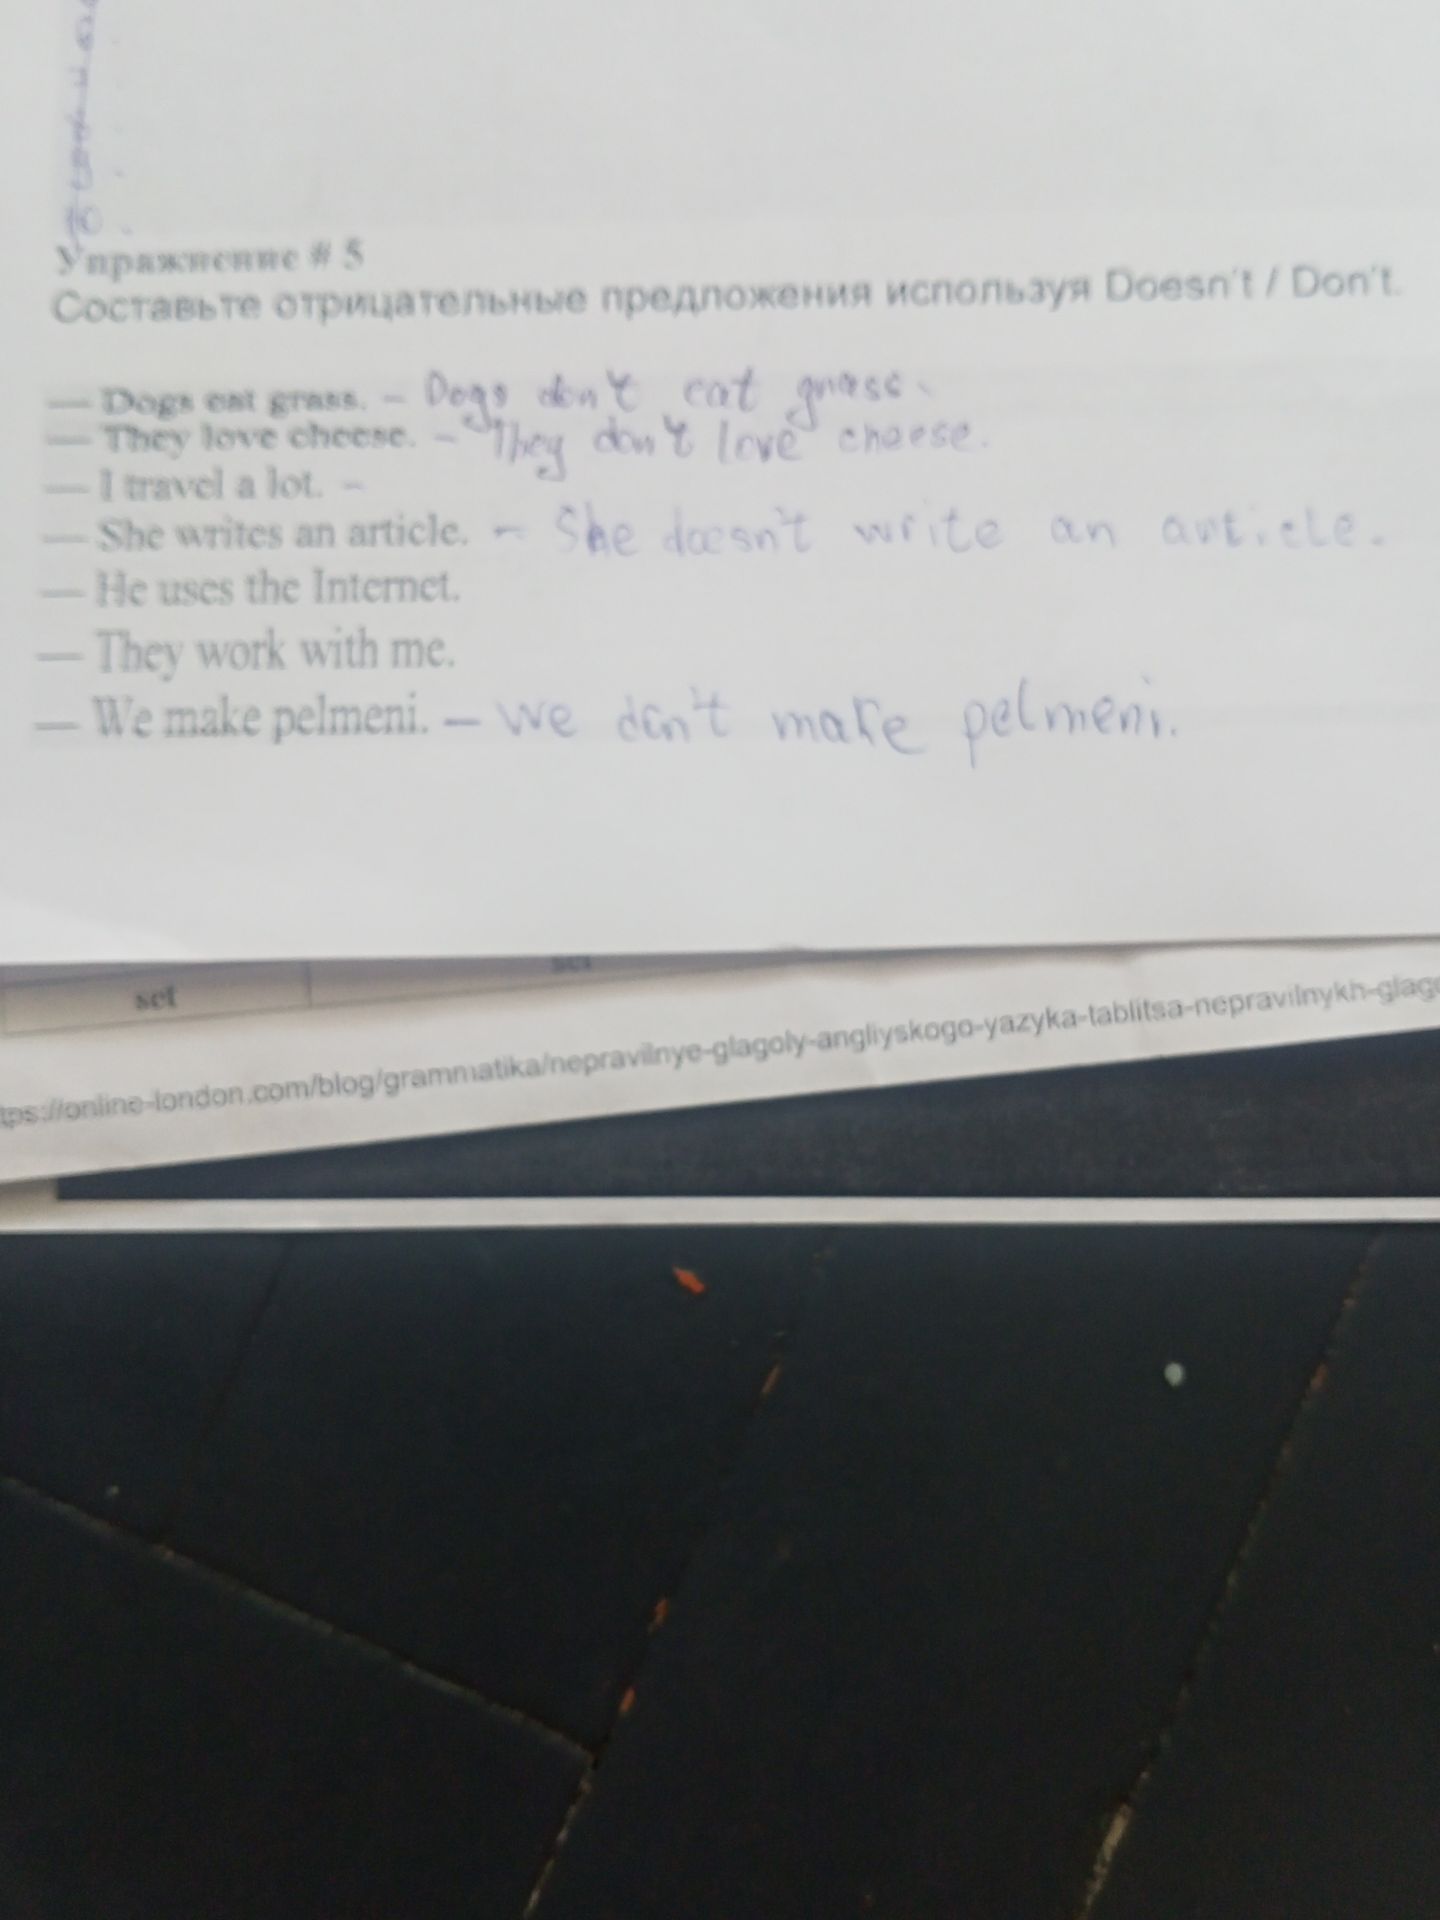 Упражнение # 5
Составьте отрицательные предложения используя Doesn't / Don't.
— Dogs eat grass. – Dogs don't eat grass.
— They love cheese. – They don't love cheese.
— I travel a lot. –
— She writes an article. – She doesn't write an article.
— He uses the Internet.
— They work with me.
— We make pelmeni. – We don't make pelmeni.
set
tps://online-london.com/blog/grammatika/nepravilnye-glagoly-angliyskogo-yazyka-tablitsa-nepravilnykh-glago